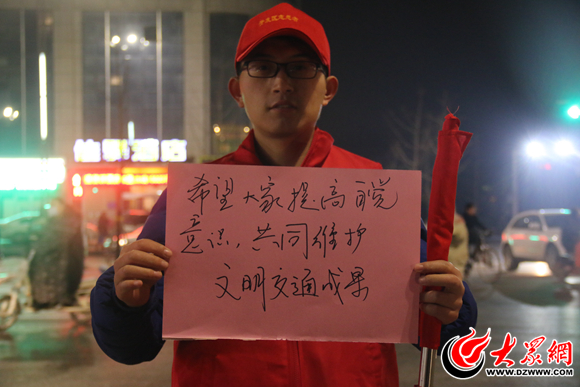 希望大家提高自觉
意识，共同维护
文明交通成果
大眾網
WWW.DZWWW.COM